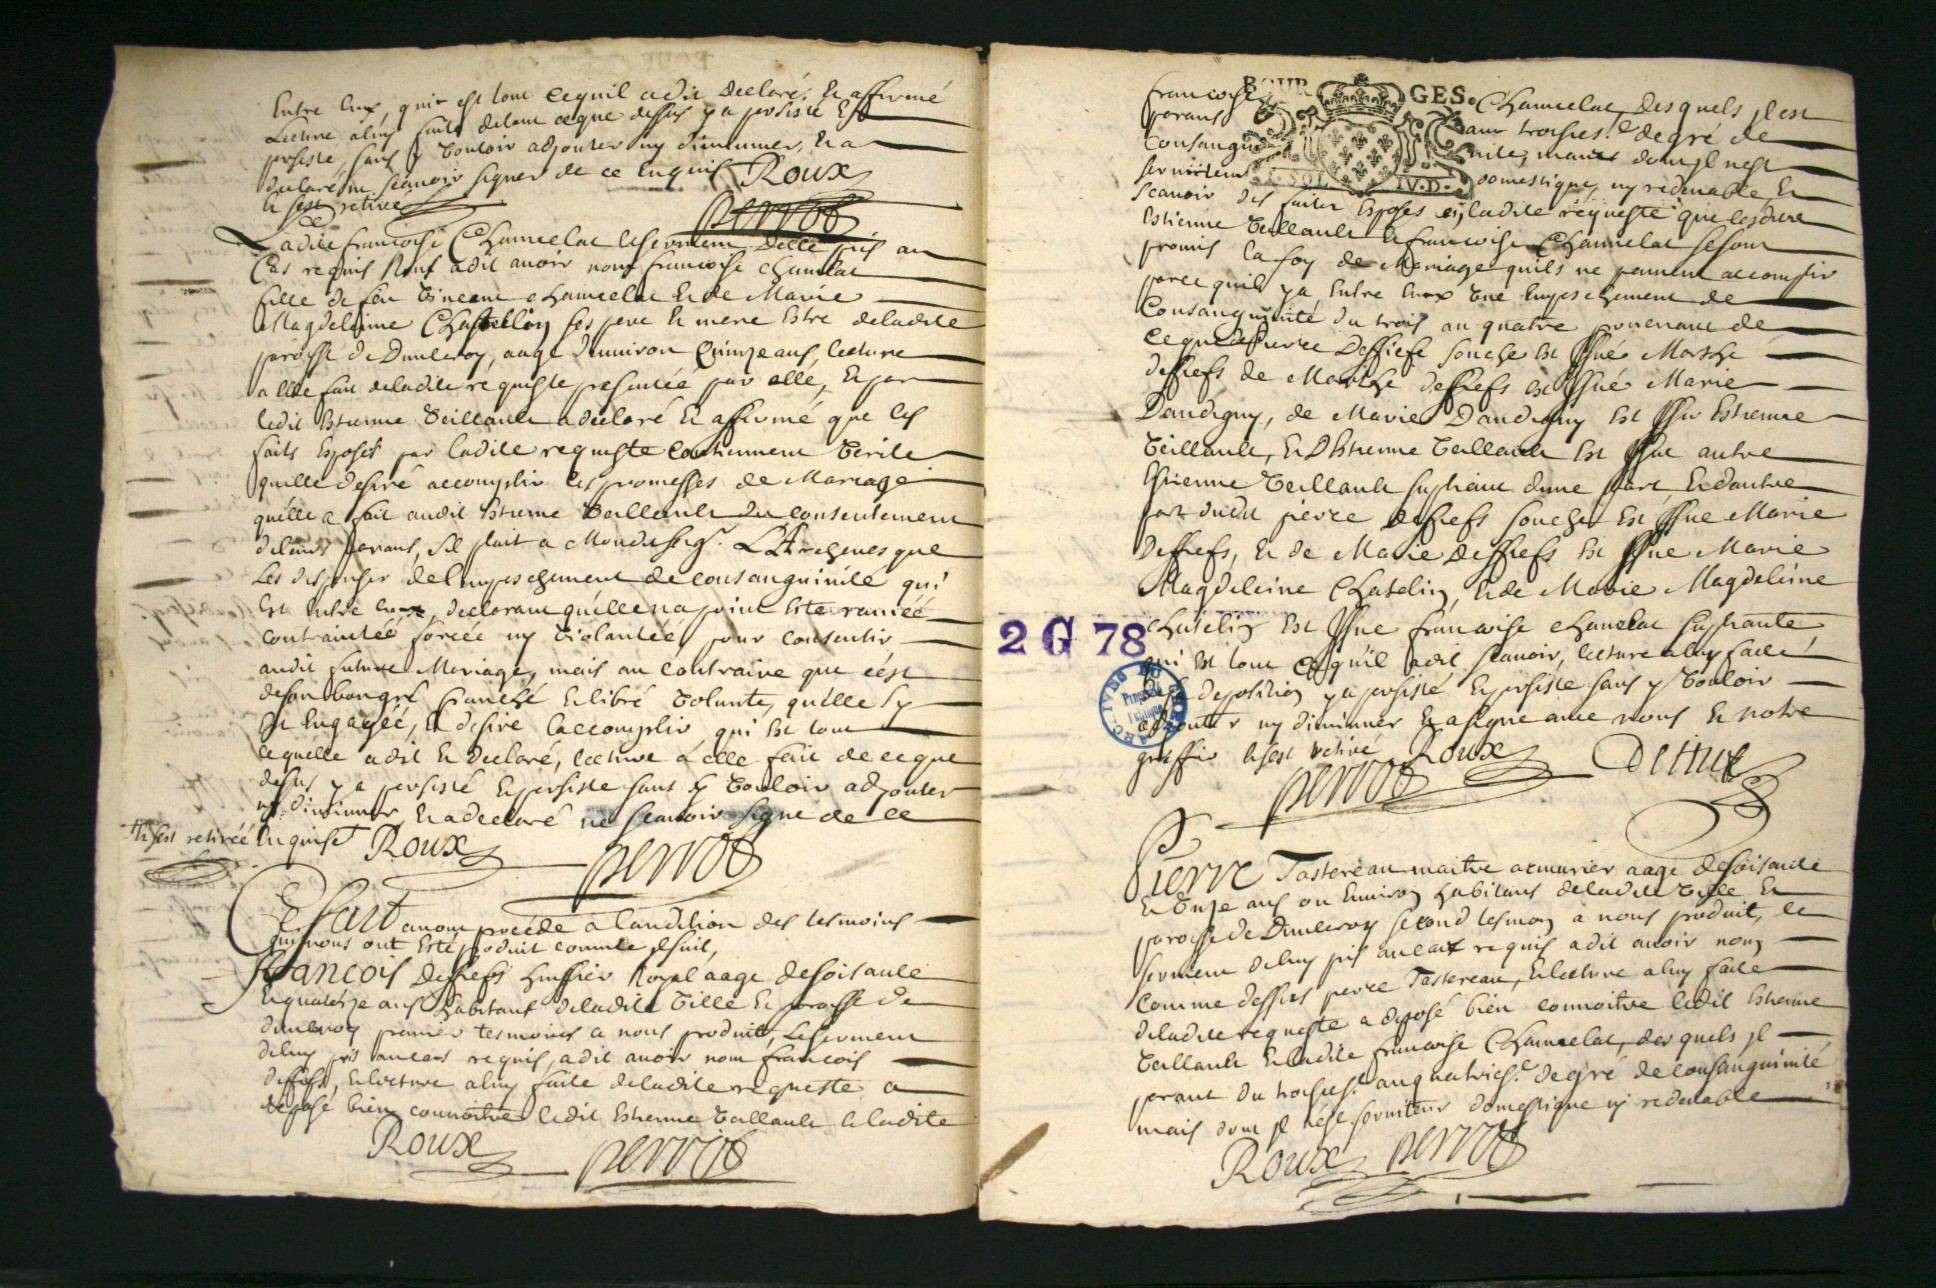 Entre eux, qui est tout cequil a dit declaré, Et affirmé
Lecture a luy faite de tout ce que dessus y a persisté Et
persiste, sans y Vouloir adjouter ny diminuer, Et a
declaré ne scauoir signer de ce Enquis Roux
Et sest retiré perrot
Ladite francoise Chamelat le serment delle pris au
Cas requis Nous a dit auoir nom francoise chamelat
fille de feu Vincent chamelat Et de Marie
Magdeleine Chastellin ses pere Et mere Estre deladite
paroisse de Dunleroy, aagé denuiron quinze ans, lecture
a elle fait deladite requeste presentéé par elle, Et par
ledit Estienne Teillault a declaré Et affirmé que les
faits Exposés par ladite requeste Contiennent Verité
quelle desire accomplir les promesses de Mariage
quelle a fait audit Estienne Teillault du consentement
de leurs parans, sil plait a Mondit seigr. LArcheuesque
Les dispenser de lempeschement de consanguinité qui
Est Entre Eux, declarant quelle na point Esté rauiéé
contraintéé forcéé ny Violantéé pour consentir
audit futur Mariage, mais au Contraire que cest
de son bon gré franche Et libre Volunté, quelle sy
Est Engagéé, Et desire laccomplir, qui Est tout
ce quelle a dit Et declaré, lecture a elle fait de ce que
dessus y a persisté Et persiste sans y Vouloir adjouter
ny diminuer, Et a declaré ne scauoir signe de ce
Et sest retiréé Enquise Roux perrot
Ce fait auons procédé a laudition des tesmoins
qui nous ont Esté produit comme sensuit,
francois deffiefs huissier Royal aagé de soisante
Et quatorze ans habitant deladite Ville Et paroisse de
dunleroy premier tesmoins a nous produit, Le serment
de luy pris au cas requis, a dit auoir nom francois
deffiefs, Et lecture a luy faite deladite requeste a
deposé bien connoitre ledit Estienne Teillault Et ladite
Roux perrot
BOURGES.
francoise Chamelat, desquels Il est
parans au troisies.e degré de
Consanguinite, mais dont Il nest
seruiteur domestique, ny redeuable Et
SOL IV.D.
scauoir des faites Exposes en ladite requeste que lesdits
Estienne Teillault Et francoise Chamelat se sont
promis la foy de Mariage quils ne peuuent accomplir
parce quil y a Entre Eux Vne Empeschement de
Consanguinité du trois au quatre prouenant de
ce que de Pierre Deffiefs souche Est Issuë Marthe
deffiefs de Marthe deffiefs Est Issuë Marie
Dandigny, de Marie Dandigny Est Issu Estienne
Teillault, Et D'Estienne Teillault Est Issu autre
Estienne Teillault supliant dune part, Et dautre
part dudit pierre deffiefs souche Est Issue Marie
Deffiefs, Et de Marie Deffiefs Est Issue Marie
Magdeleine Chastelin, Et de Marie Magdeleine
chastelin Est Issue francoise chamelat supliante
2 G 78
qui Est tout ce qu'il a dit scauoir, lecture a luy faite
deposition y a persisté Et persiste sans y Vouloir
adjouter ny diminuer Et a signé auec nous Et notre
greffier Et sest retiré Roux
perrot
Pierre Tastereau maitre armurier aagé de soisante
Et Onze ans ou Enuiron habitans deladite Ville Et
paroisse de Dunleroy second tesmoin a nous produit, le
serment de luy pris au cas requis a dit auoir nom
comme dessus pierre Tastereau, Et lecture a luy faite
deladite requeste a deposé bien connoitre ledit Estienne
Teillault Et ladite francoise Chamelat, des quels Il
parant du troisies.e au quatries.e degré de consanguinité
mais dont Il nest seruiteur domestique ny redeuable
Roux perrot